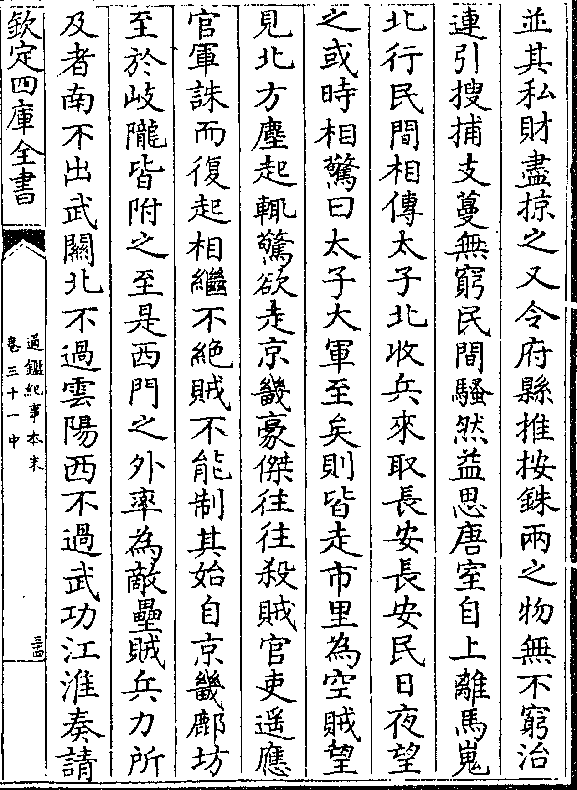 並其私財盡掠之又令府縣推按銖兩之物無不窮治
連引搜捕支蔓無窮民間騷然益思唐室自上離馬嵬
北行民間相傳太子北收兵來取長安長安民日夜望
之或時相驚曰太子大軍至矣則皆走市里為空賊望
見北方塵起輒驚欲走京畿豪傑往往殺賊官吏遥應
官軍誅而復起相繼不絶賊不能制其始自京畿鄜坊
至於岐隴皆附之至是西門之外率為敵壘賊兵力所
及者南不出武關北不過雲陽西不過武功江淮奏請
欽定四庫全書
通鑑紀事本末
卷三十一中
三四